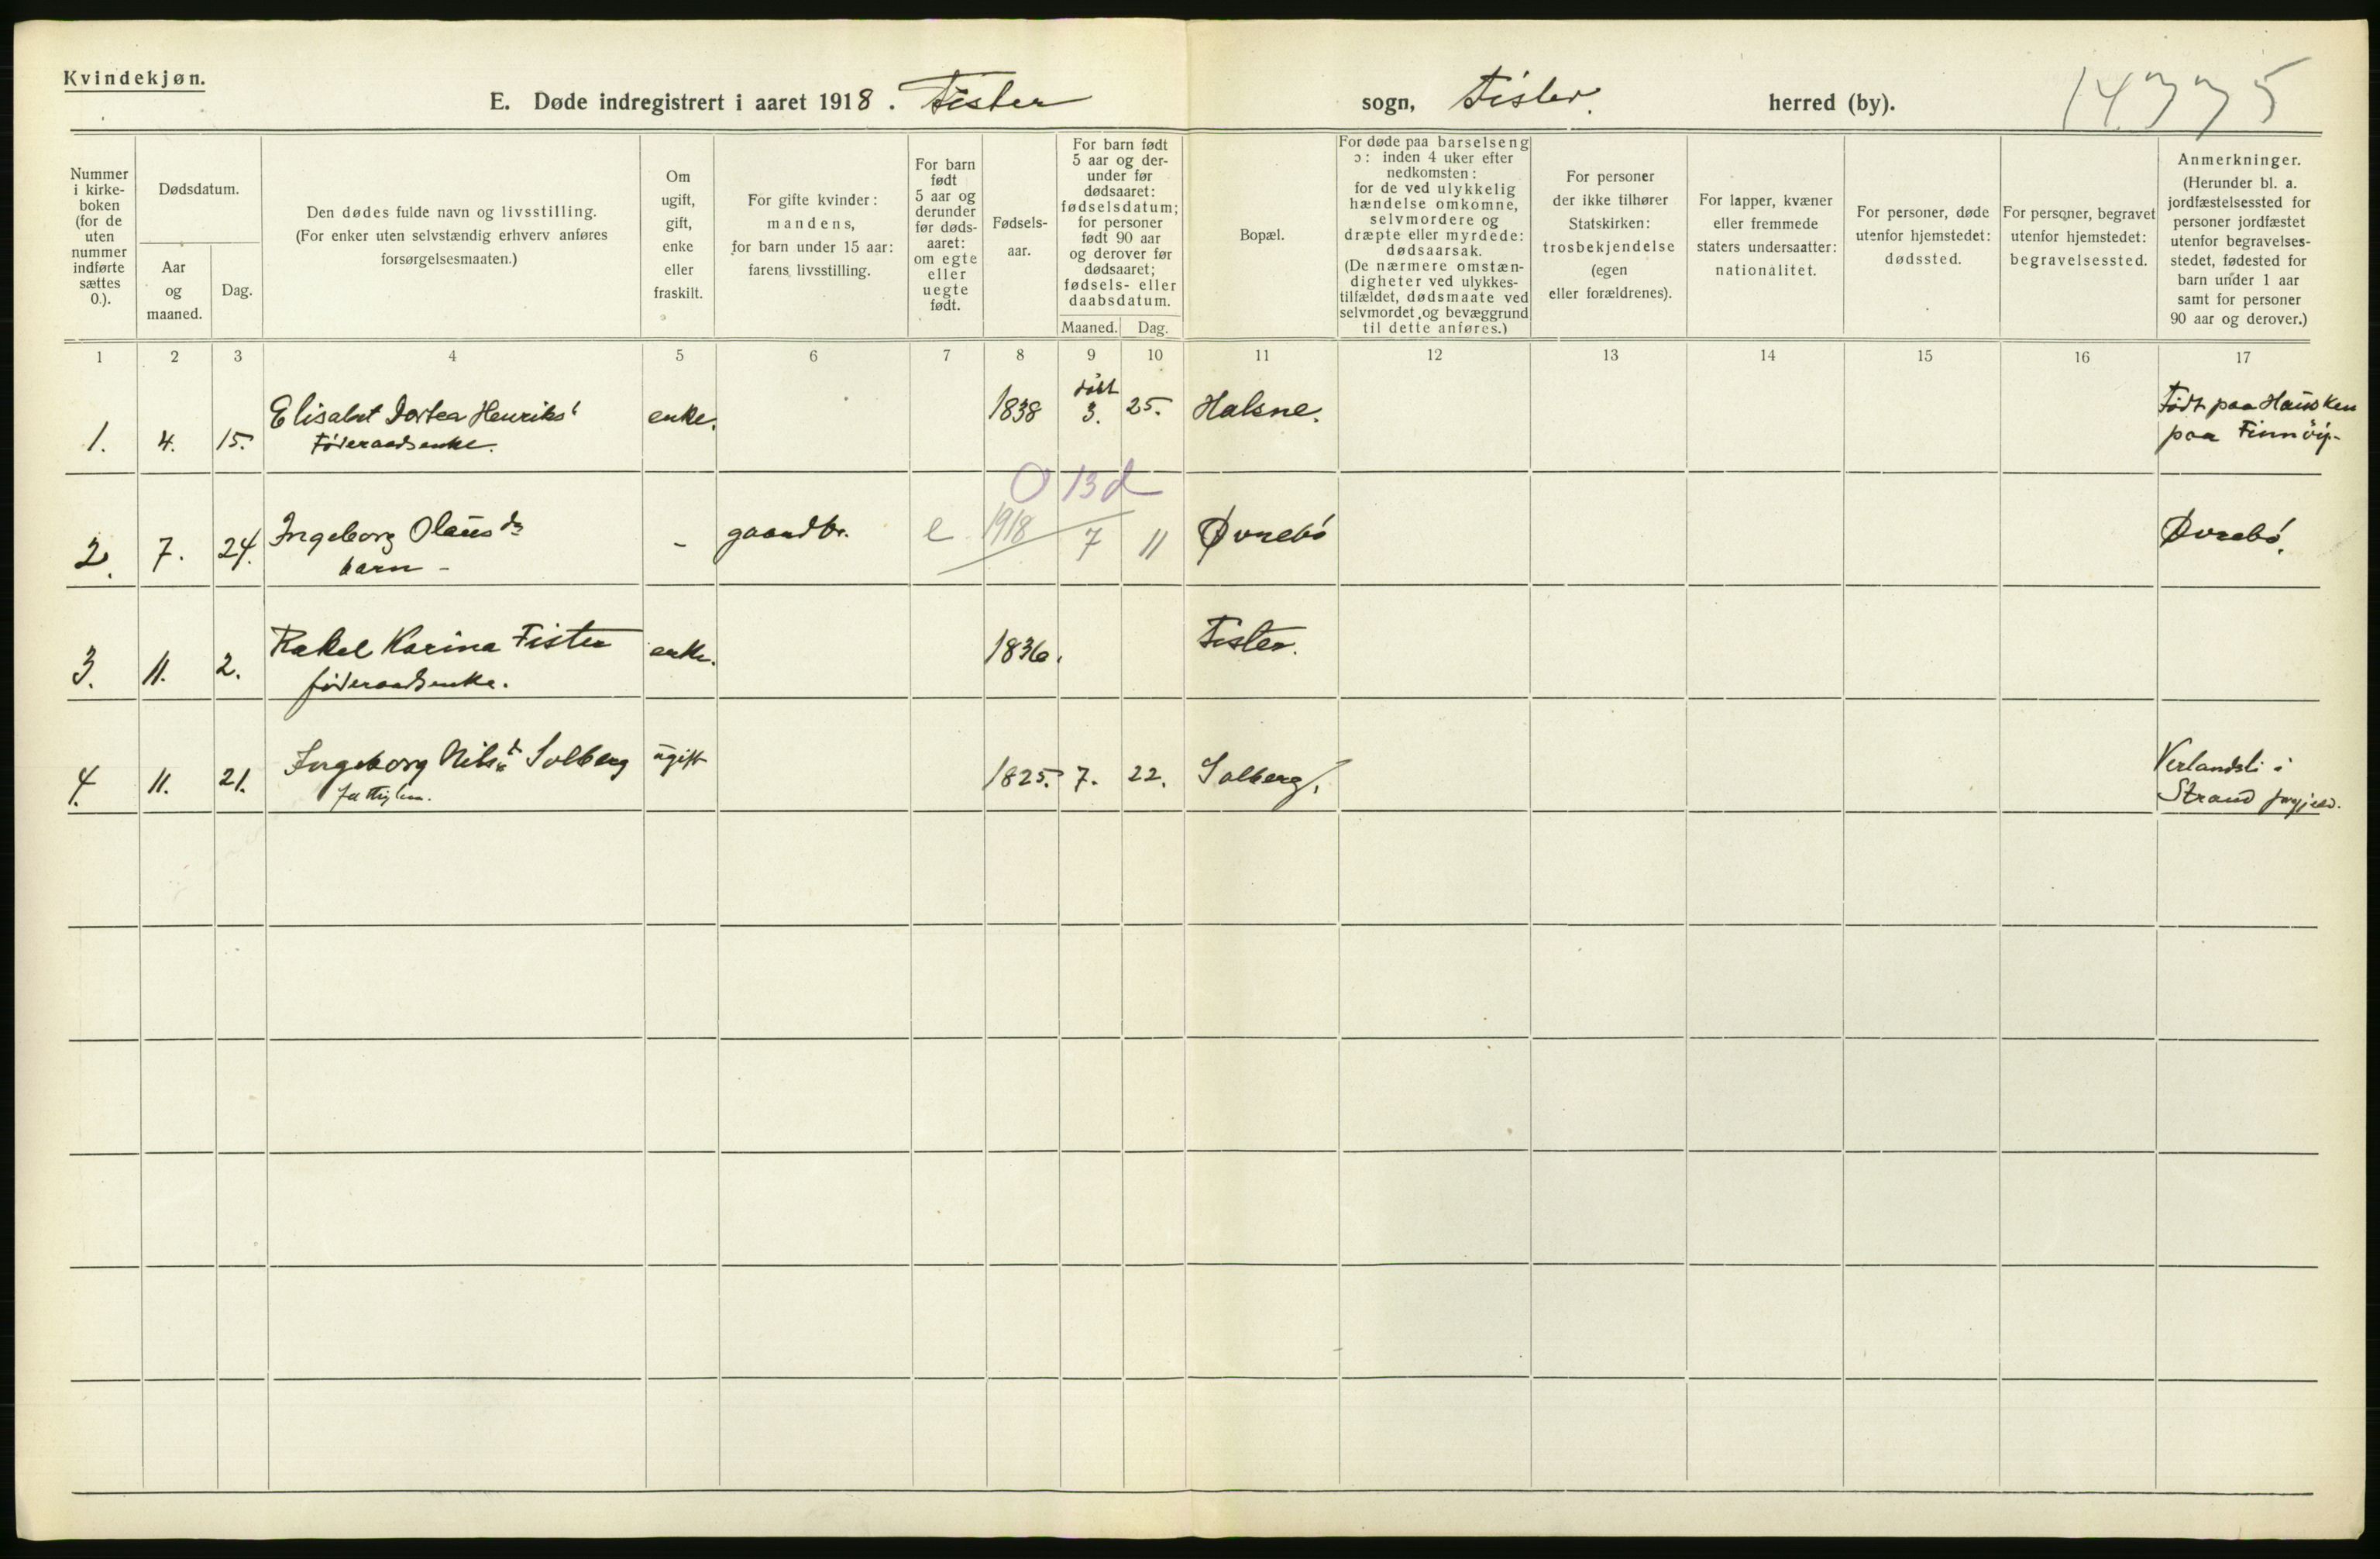 Kvindekjøn.
E. Døde indregistrert i aaret 1918. Fister sogn, Fister. herred (by). 14775
Nummer i kirke-boken (for de uten nummer indførte sættes 0.).
Dødsdatum.
Aar og maaned.
Dag.
Den dødes fulde navn og livsstilling.
(For enker uten selvstændig erhverv anføres
forsørgelsesmaaten.)
Om ugift, gift, enke eller fraskilt.
For gifte kvinder:
mandens,
for barn under 15 aar:
farens livsstilling.
For barn født 5 aar og derunder før døds-aaret: om egte eller uegte født.
Fødsels-aar.
For barn født 5 aar og der-under før dødsaaret: fødselsdatum; for personer født 90 aar og derover før dødsaaret; fødsels- eller daabsdatum.
Maaned.
Dag.
Bopæl.
For døde paa barselseng
ɔ: inden 4 uker efter
nedkomsten:
for de ved ulykkelig
hændelse omkomne,
selvmordere og
dræpte eller myrdede:
dødsaarsak.
(De nærmere omstæn-
digheter ved ulykkes-
tilfældet, dødsmaate ved
selvmordet og bevæggrund
til dette anføres.)
For personer
der ikke tilhører
Statskirken:
trosbekjendelse
(egen
eller forældrenes).
For lapper, kvæner
eller fremmede
staters undersaatter:
nationalitet.
For personer, døde
utenfor hjemstedet:
dødssted.
For personer, begravet
utenfor hjemstedet:
begravelsessted.
Anmerkninger.
(Herunder bl. a.
jordfæstelsessted for
personer jordfæstet
utenfor begravelses-
stedet, fødested for
barn under 1 aar
samt for personer
90 aar og derover.)
1 2 3 4 5 6 7 8 9 10 11 12 13 14 15 16 17
1. 4. 15. Elisabet Dortea Henriks enke. 1838 født 3. 25. Halsne. Født paa Hausken
Føderaadsenke. paa Finnöy.
0 13 d
2. 7. 24. Ingeborg Olausdr - gaardbr. e 1918 7 11 Øvrebö Øvrebö.
barn -
3. 11. 2. Rakel Karina Fister enke. 1836. Fister.
föderaadsenke.
4. 11. 21. Ingeborg Nilsdt Solberg ugift 1825. 7. 22. Solberg. Verlandsli i
fattiglem. Strand prgjeld.